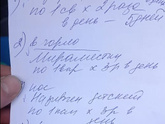 по 1 св x 2 раза
в день - 5 дней
2) в горло
Мирамистин
по 1 впр x 3р в день
нос
Називин детский
по 1 кап x 3р в